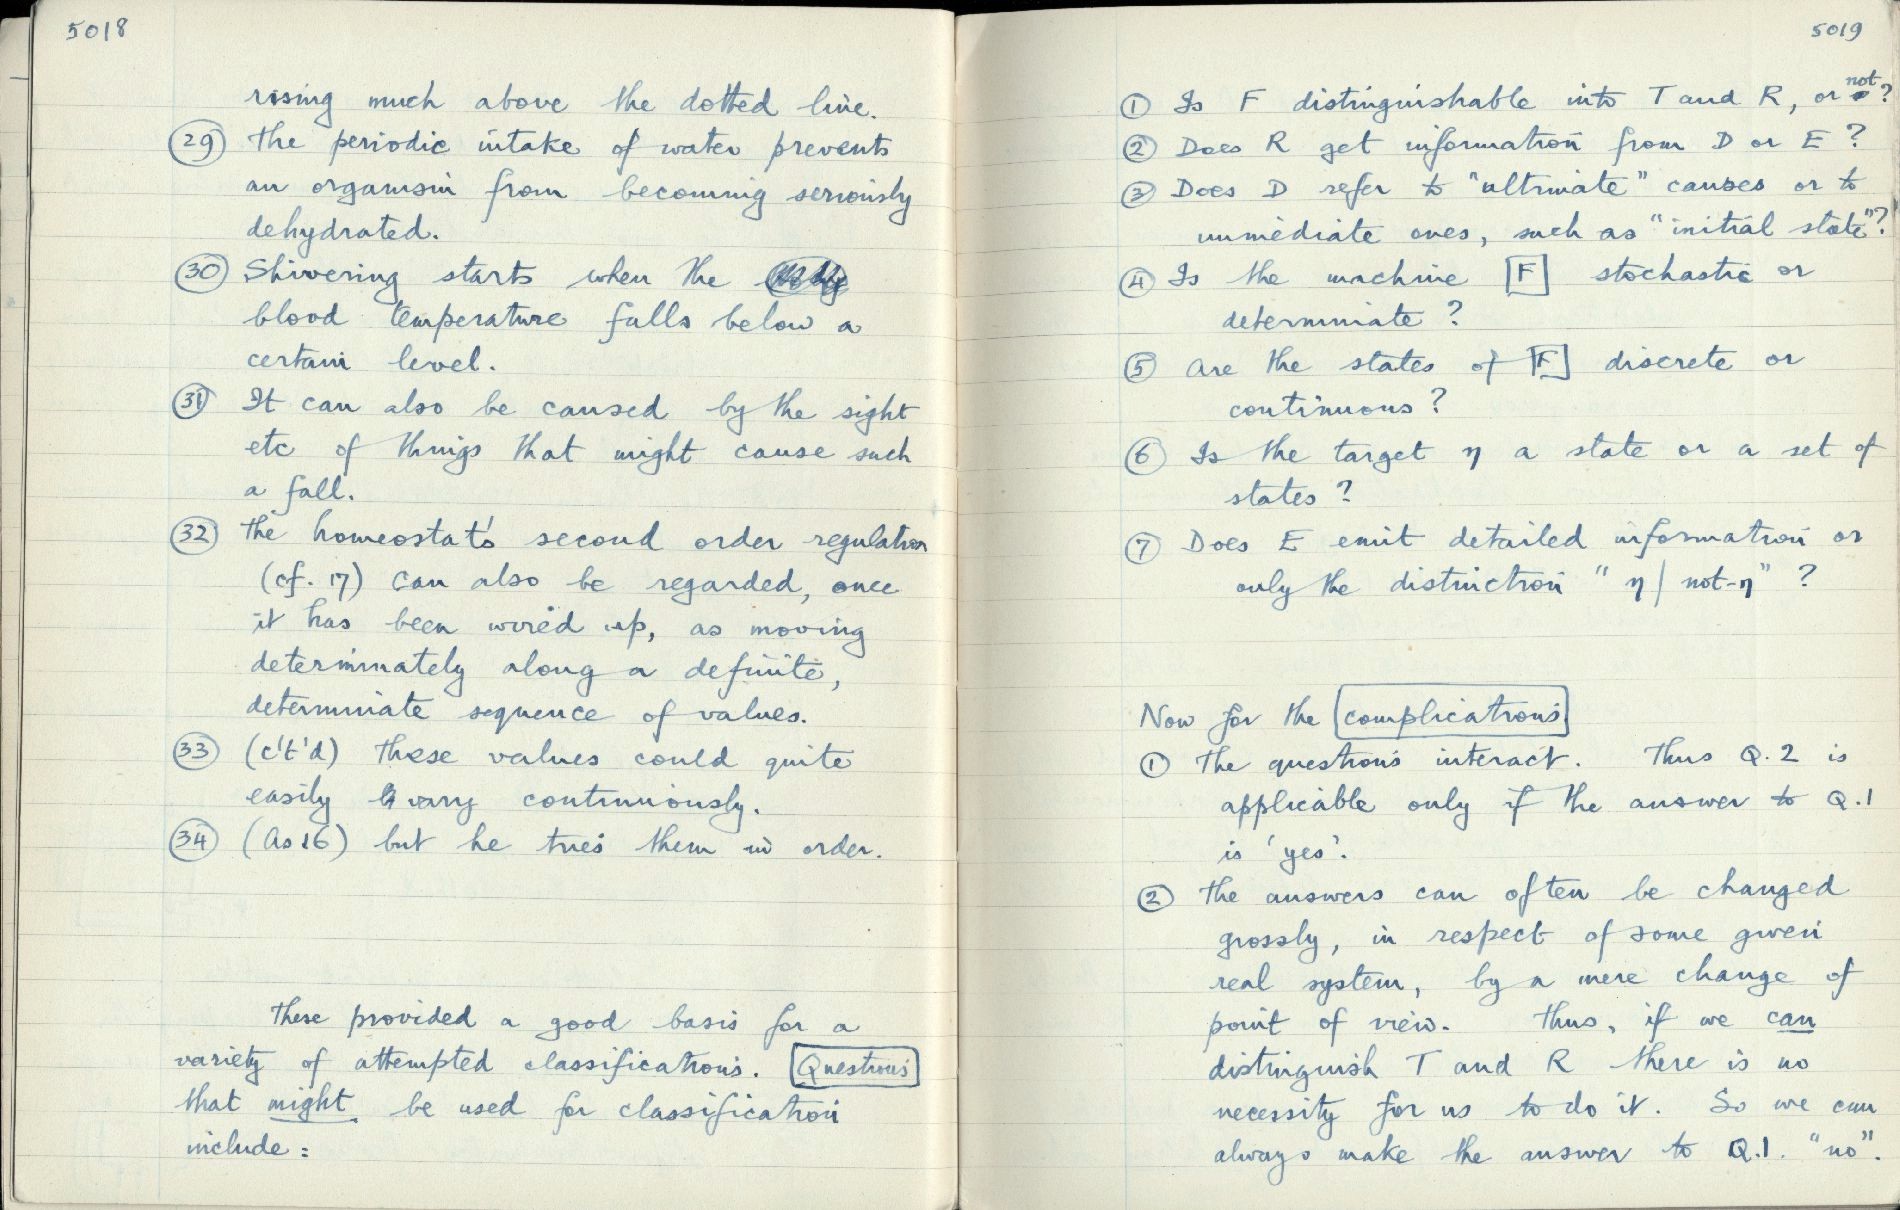 5018
rising much above the dotted line.
(29) The periodic intake of water prevents
an organism from becoming seriously
dehydrated.
(30) Shivering starts when the
blood temperature falls below a
certain level.
(31) It can also be caused by the sight
etc of things that might cause such
a fall.
(32) The homeostat's second order regulation
(cf. 17) can also be regarded, once
it has been wired up, as moving
determinately along a definite,
determinate sequence of values.
(33) (c't'd) These values could quite
easily vary continuously.
(34) (As 16) but he tries them in order.
These provided a good basis for a
variety of attempted classifications. Questions
that might be used for classification
include:
5019
(1) Is F distinguishable into T and R, or not?
(2) Does R get information from D or E?
(3) Does D refer to "ultimate" causes or to
immediate ones, such as "initial state"?
(4) Is the machine [F] stochastic or
determinate?
(5) Are the states of [F] discrete or
continuous?
(6) Is the target η a state or a set of
states?
(7) Does E emit detailed information or
only the distinction "η / not-η"?
Now for the complications
(1) The questions interact. Thus Q.2 is
applicable only if the answer to Q.1
is 'yes'.
(2) The answers can often be changed
grossly, in respect of some given
real system, by a mere change of
point of view. Thus, if we can
distinguish T and R there is no
necessity for us to do it. So we can
always make the answer to Q.1. "no".